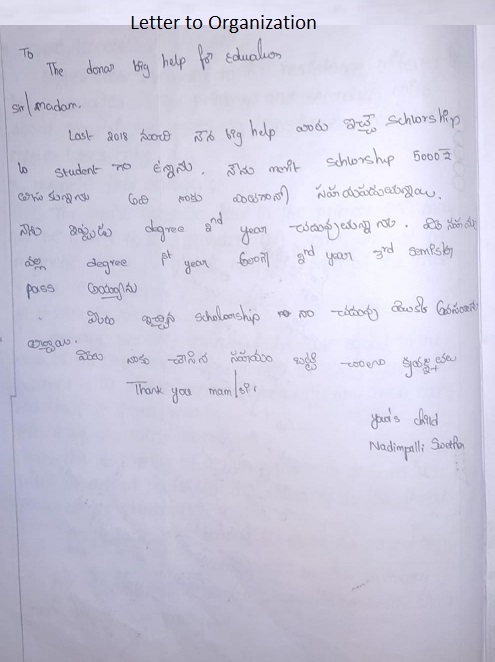 Letter to Organization
To
The donar big help for Education
sir/madam.
Last 2018 నుంచి నేను big help వారు ఇచ్చే Schlorship
lo student గా ఉన్నాను. నేను merit schlorship 5000
నాకు
నేను ఇప్పుడు degree 2nd year చదువుతున్నాను. మీ సహాయం
వల్ల degree 1st year 2nd year 3rd semister
pass అయ్యాను
మీరు ఇచ్చిన scholarship నా చదువు
మీరు నాకు చేసిన సహాయం బట్టి చాలా కృతజ్ఞతలు
Thank you mam/sir
your's child
Nadimpalli